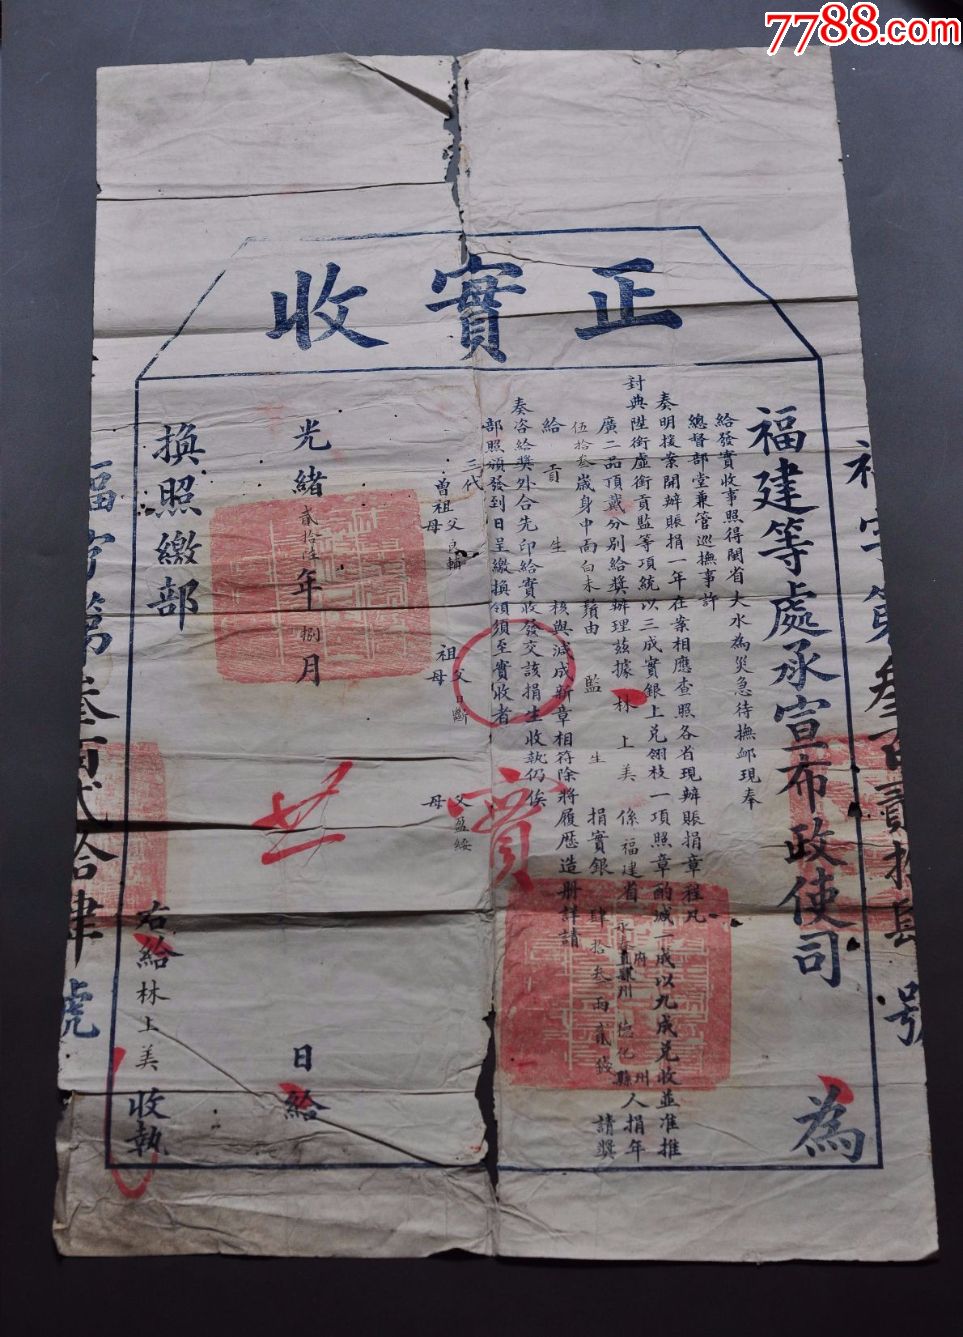 7788.com
正實收
福字第叁百貳拾肆號
福建等處承宣布政使司 為
給發實收事照得閩省大水為災急待撫卹現奉
總督部堂兼管巡撫事許
奏明援案開辦賬捐一年在案相應查照各省現辦賬捐章程凡
封典陞銜虛銜貢監等項統以三成實銀上兌翎枝一項照章酌減一成以九成兌收並准推
廣二品頂戴分別給獎辦理茲據林上美係福建省永春直隸州府德化縣州人捐年
伍拾叁歲身中面白未鬚由監生捐實銀肆拾叁兩貳錢請獎
給貢生核與減成新章相符除將履歷造冊詳請
奏咨給獎外合先印給實收發交該捐生收執仍俟
部照頒發到日呈繳換領須至實收者
三代
曾祖父母 祖父母 父盈綏 母
實
光緒貳拾陸年捌月 日給
右給林上美收執
換照繳部
福字第叁百貳拾肆號